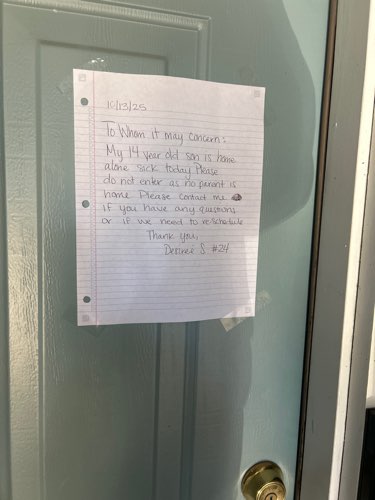 10/13/25
To Whom it may concern:
My 14 year old son is home
alone sick today Please
do not enter as no parent is
home Please contact me
if you have any questions
or if we need to reschedule
Thank you,
Desiree S. #24